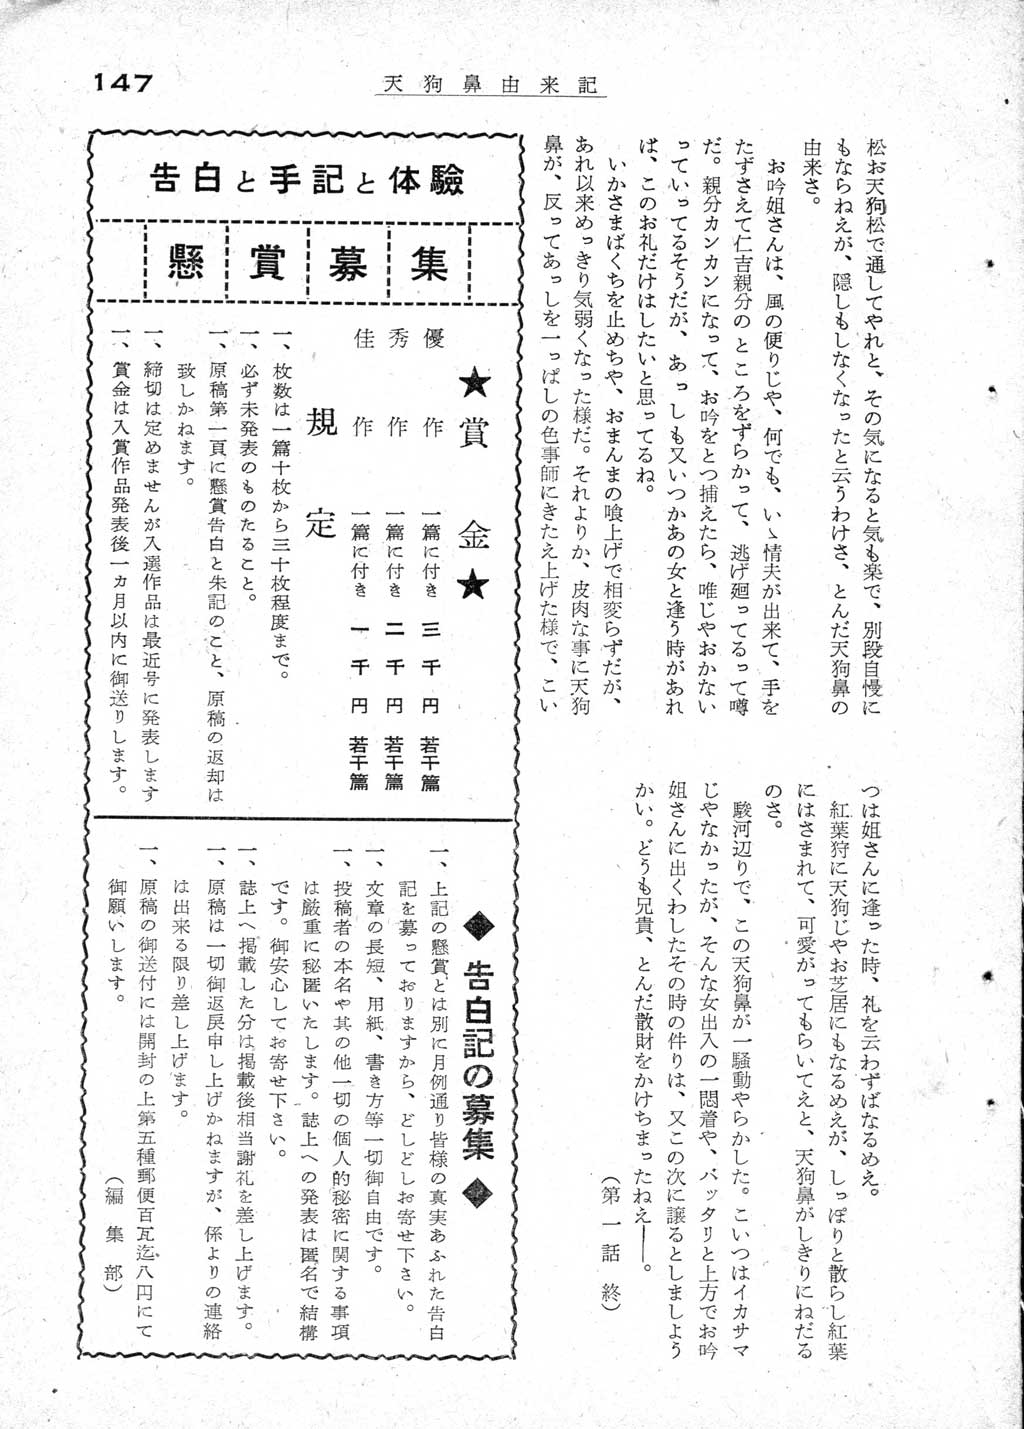 147
天狗鼻由来記
松お天狗松で通してやれと、その気になると気も楽で、別段自慢に
もならねえが、隠しもしなくなったと云うわけさ、とんだ天狗鼻の
由来さ。
お吟姐さんは、風の便りじゃ、何でも、いゝ情夫が出来て、手を
たずさえて仁吉親分のところをずらかって、逃げ廻ってるって噂
だ。親分カンカンになって、お吟をとつ捕えたら、唯じゃおかない
っていってるそうだが、あっしも又いつかあの女と逢う時があれ
ば、このお礼だけはしたいと思ってるね。
いかさまばくちを止めちゃ、おまんまの喰上げで相変らずだが、
あれ以来めっきり気弱くなった様だ。それよりか、皮肉な事に天狗
鼻が、反ってあっしを一っぱしの色事師にきたえ上げた様で、こい
つは姐さんに逢った時、礼を云わずばなるめえ。
紅葉狩に天狗じゃお芝居にもなるめえが、しっぽりと散らし紅葉
にはさまれて、可愛がってもらいてえと、天狗鼻がしきりにねだる
のさ。
駿河辺りで、この天狗鼻が一騒動やらかした。こいつはイカサマ
じゃなかったが、そんな女出入の一悶着や、バッタリと上方でお吟
姐さんに出くわしたその時の件りは、又この次に譲るとしましよう
かい。どうも兄貴、とんだ散財をかけちまったねえ――。
（第一話 終）
告白と手記と体験
懸賞募集
★賞金★
優作 一篇に付き 三千円 若干篇
秀作 一篇に付き 二千円 若干篇
佳作 一篇に付き 一千円 若干篇
規定
一、枚数は一篇十枚から三十枚程度まで。
一、必ず未発表のものたること。
一、原稿第一頁に懸賞告白と朱記のこと、原稿の返却は
致しかねます。
一、締切は定めませんが入選作品は最近号に発表します
一、賞金は入賞作品発表後一ヵ月以内に御送りします。
◆告白記の募集◆
一、上記の懸賞とは別に月例通り皆様の真実あふれた告白
記を募っておりますから、どしどしお寄せ下さい。
一、文章の長短、用紙、書き方等一切御自由です。
一、投稿者の本名や其の他一切の個人的秘密に関する事項
は厳重に秘匿いたします。誌上への発表は匿名で結構
です。御安心してお寄せ下さい。
一、誌上へ掲載した分は掲載後相当謝礼を差し上げます。
一、原稿は一切御返戻申し上げかねますが、係よりの連絡
は出来る限り差し上げます。
一、原稿の御送付には開封の上第五種郵便百瓦迄八円にて
御願いします。
（編集部）